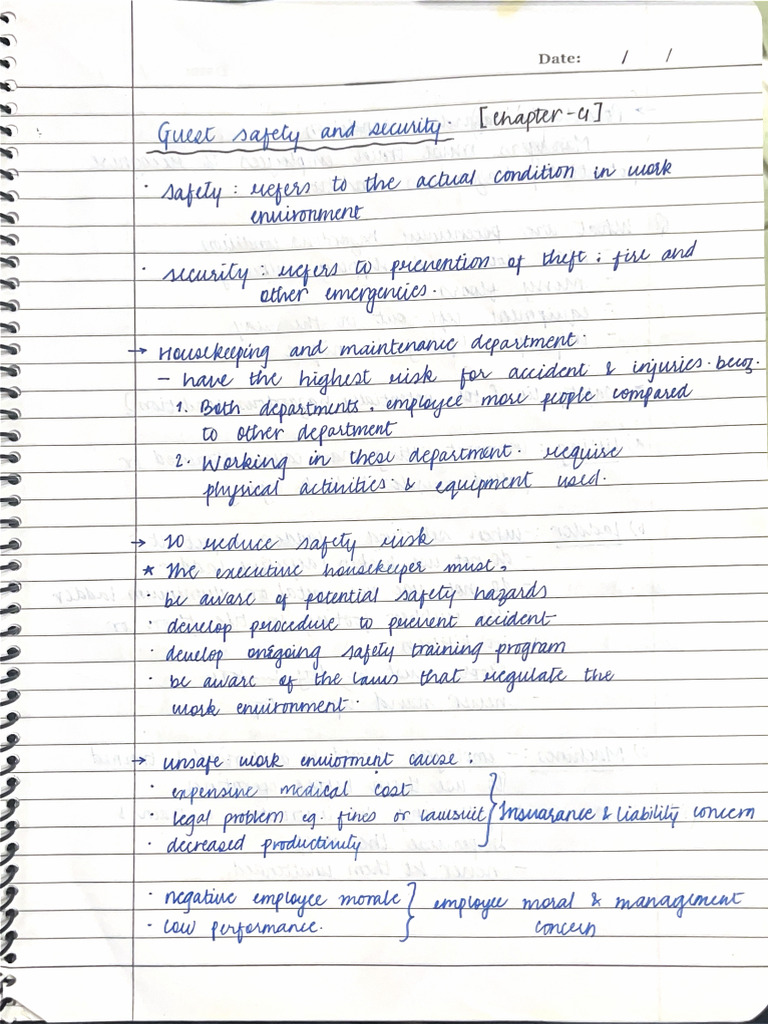 Date: / /
Guest safety and security. [chapter-4]
· safety : refers to the actual condition in work
environment
· security : refers to prevention of theft ; fire and
other emergencies.
→ Housekeeping and maintenance department.
- have the highest risk for accident & injuries. becoz.
1. Both departments. employee more people compared
to other department
2. Working in these department. require
physical activities & equipment used.
→ To reduce safety risk
* The executive housekeeper must,
· be aware of potential safety hazards
· develop procedure to prevent accident
· develop ongoing safety training program
· be aware of the laws that regulate the
work environment.
→ unsafe work enviorment cause :
· expensive medical cost
· legal problem eg. fines or lawsuit } Insuarance & liability concern
· decreased productivity
· negative employee morale } employee moral & management
· low performance. concern